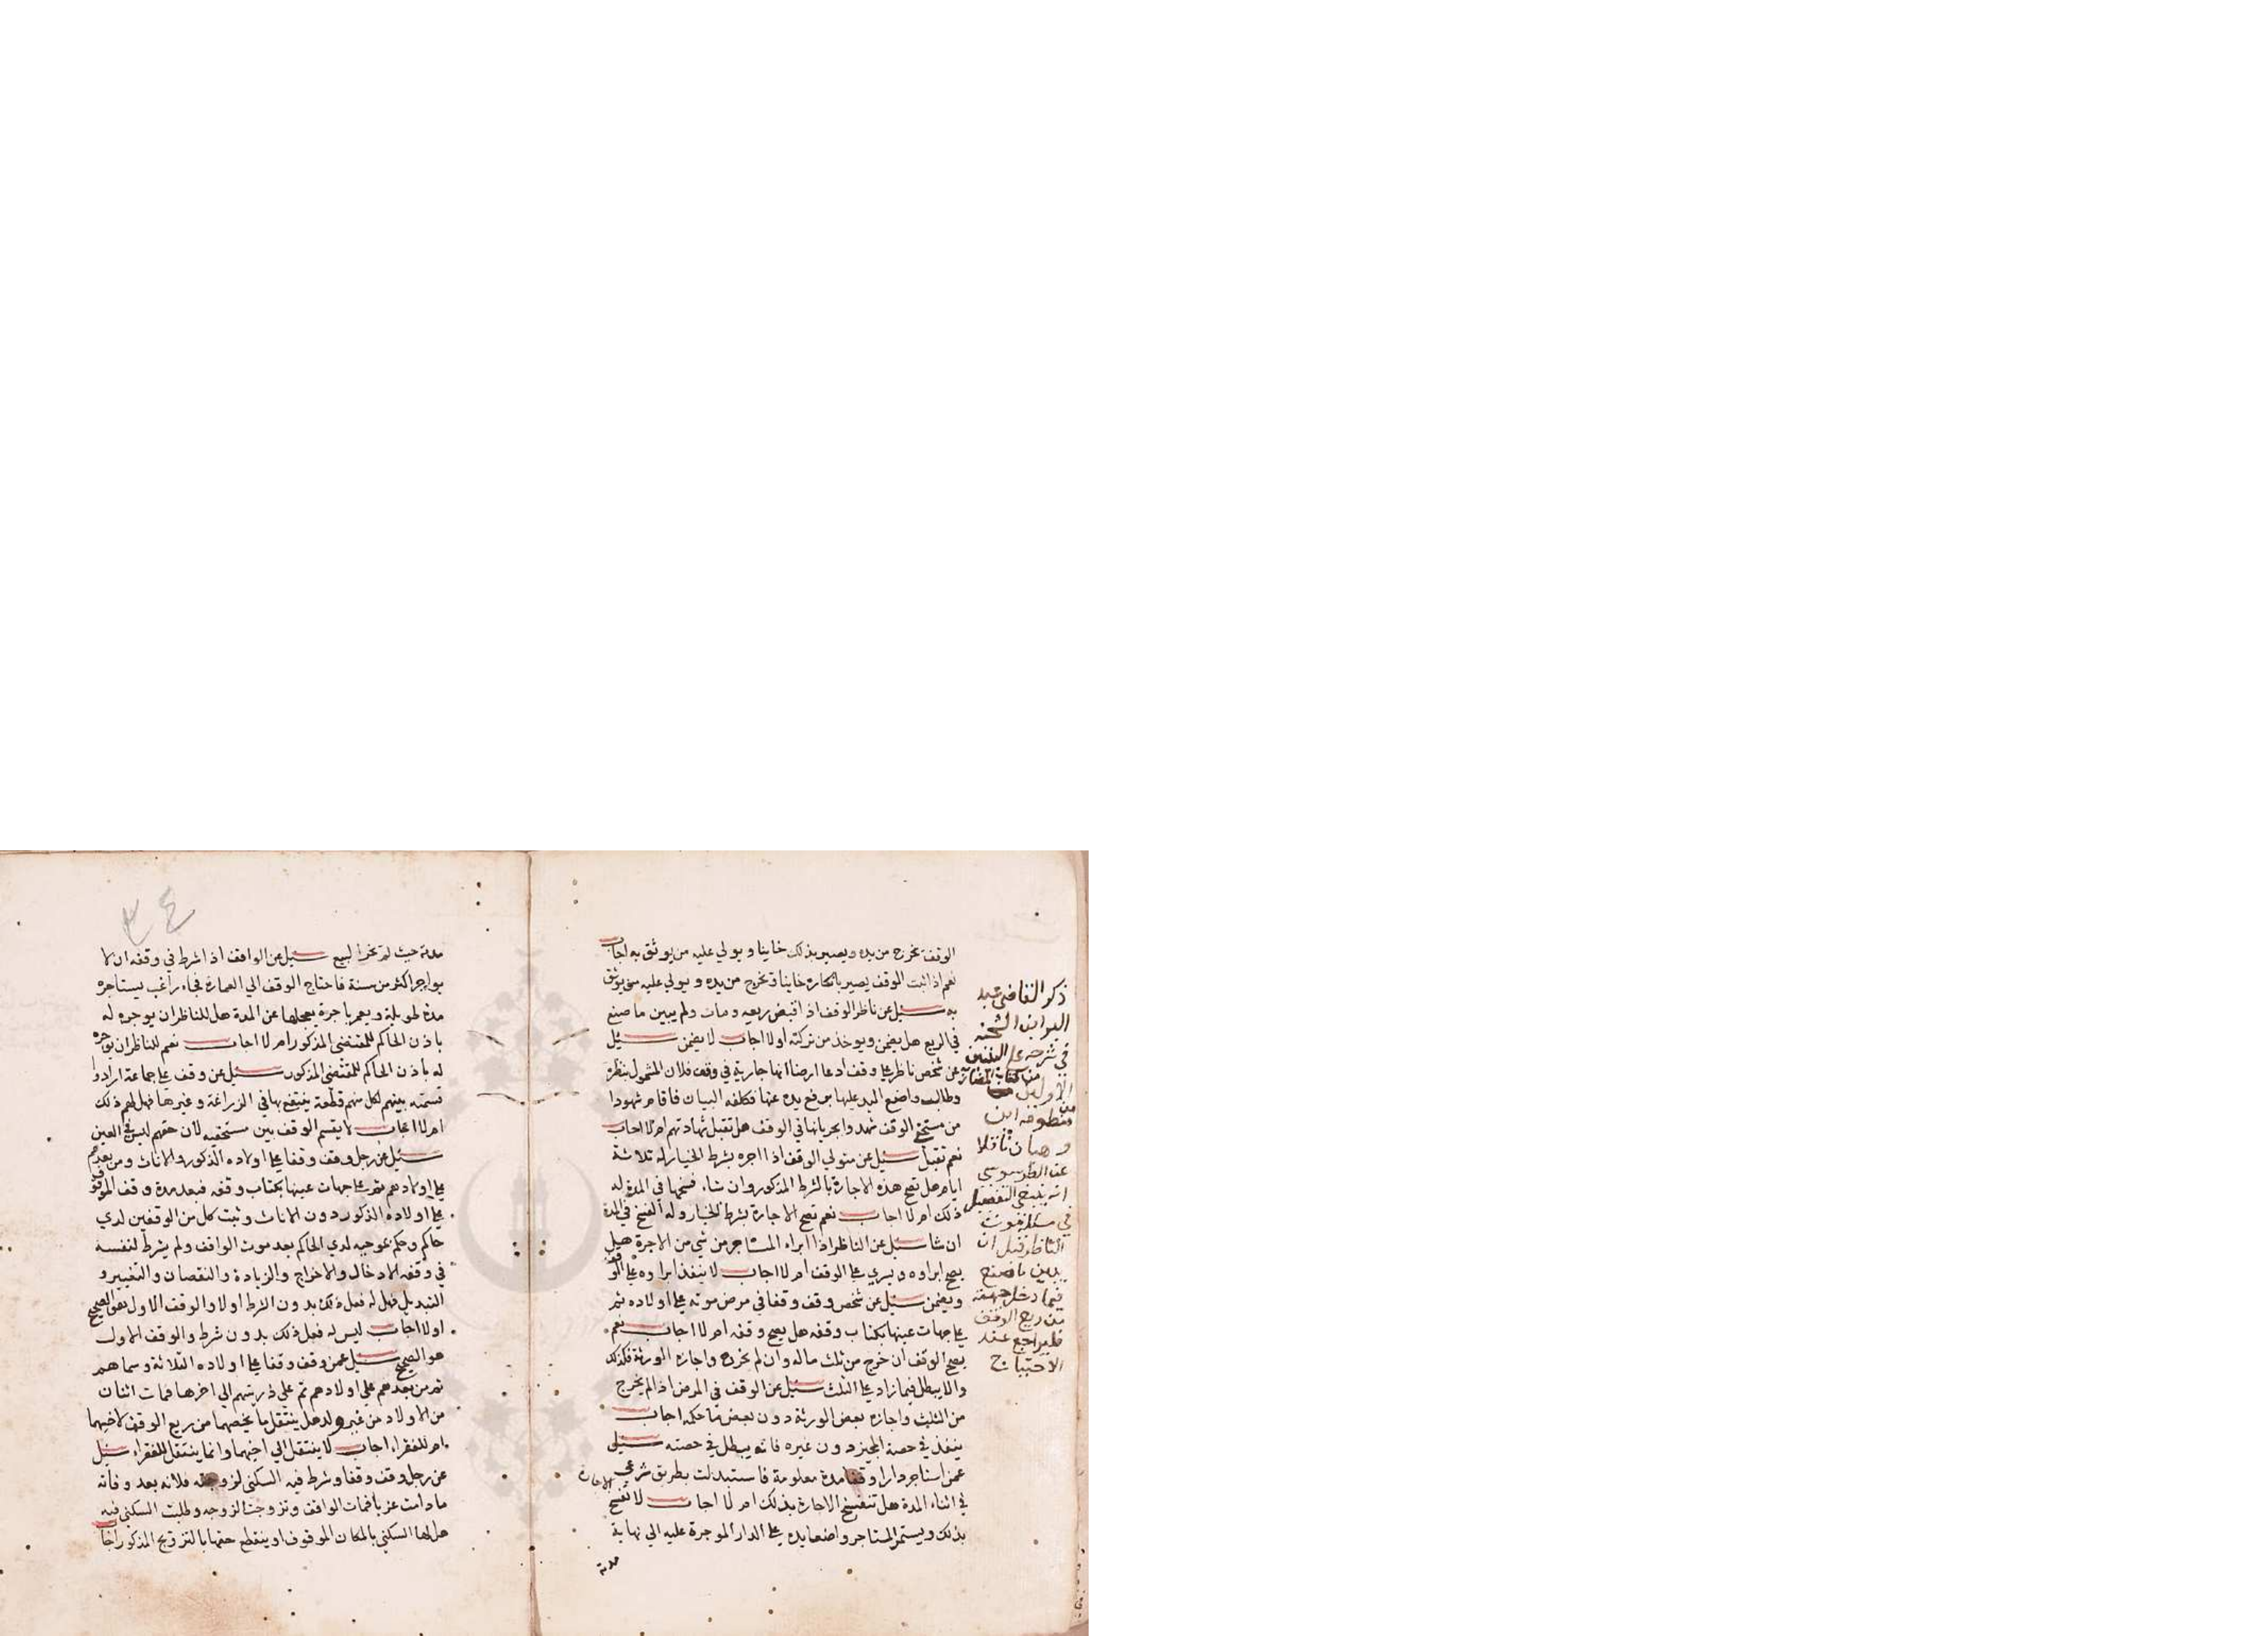 الوقف تخرج من يده ويصير بذلك خاينا ويولي عليه من يوثق به اجاب
نعم اذا ثبت الوقف يصير بانكاره خاينا وتخرج من يده ويولي عليه من يوثق
به سيل عن ناظر الوقف اذا قبض ريعه ومات ولم يبين ما صنع
في الريع هل يضمن ويوخذ من تركته اولا اجاب لا يضمن سيل
عن شخص ناظر علي وقف ادعا ارضا انها جارية في وقف فلان المشمول بنظره
وطالب واضع اليد عليها برفع يده عنها فكلفه البيان فاقام شهودا
من مستحقي الوقف شهدوا بجريانها في الوقف هل تقبل شهادتهم ام لا اجاب
نعم تقبل سيل عن متولي الوقف اذا اجره بشرط الخيار له ثلاثة
ايام هل تصح هذه الاجارة بالشرط المذكور وان شاء فسخها في المدة له
ذلك ام لا اجاب نعم تصح الاجارة بشرط الخيار وله الفسخ في المدة
ان شا سيل عن الناظر اذا ابراء المستاجر من شي من الاجرة هل
يصح ابراوه ويسري علي الوقف ام لا اجاب لا ينفذ ابراوه علي الوقف
ويضمن سيل عن شخص وقف وقفا في مرض موته علي اولاده ثم
علي جهات عينها بكتاب وقفه هل يصح وقفه ام لا اجاب نعم
يصح الوقف ان خرج من ثلث ماله وان لم يخرج واجازه الورثة فكذلك
والا يبطل فيما زاد علي الثلث سيل عن الوقف في المرض اذا لم يخرج
من الثلث واجازه بعض الورثة دون بعض ما حكمه اجاب
ينفذ في حصة المجيز دون غيره فانه يبطل في حصته سيل
عمن استاجر دارا وقفا مدة معلومة فاستبدلت بطريق شرعي
في اثناء المدة هل تنفسخ الاجارة بذلك ام لا اجاب لا تفسخ الاجارة
بذلك ويستمر المستاجر واضعا يده علي الدار الموجرة عليه الي نهاية
مدته
ذكر القاضي عبد
البر ابن الشحنه
في شرحه علي
من كتاب
الاول
من منظومة ابن
وهبان ناقلا
عن الطرسوسي
انه ينبغي التفصيل
في مسئلة موت
الناظر قبل ان
يبين ما صنع
فيما دخل جهته
من ريع الوقف
فليراجع عند
الاحتياج
٣٤
مدته حيث لم تخر البيع سيل عن الواقف اذا شرط في وقفه ان لا
يواجر اكثر من سنة فاحتاج الوقف الي العمارة فجاء راغب يستاجره
مدة طويلة ويعمر باجرة يعجلها عن المدة هل للناظر ان يوجره له
باذن الحاكم للمقتضي المذكور ام لا اجاب نعم للناظر ان يواجره
له باذن الحاكم للمقتضي المذكور سيل عن وقف علي جماعة ارادوا
قسمته بينهم لكل منهم قطعة ينتفع بها في الزراعة وغيرها فهل لهم ذلك
ام لا اجاب لا يقسم الوقف بين مستحقيه لان حقهم ليس في العين
سيل عن رجل وقف وقفا علي اولاده الذكور والاناث ومن بعدهم
علي اولادهم ثم علي جهات عينها بكتاب وقفه فبعد مدة وقف الموقوف
علي اولاده الذكور دون الاناث وثبت كل من الوقفين لدي
حاكم وحكم بموجبه لدي الحاكم بعد موت الواقف ولم يشرط لنفسه
في وقفه الادخال والاخراج والزيادة والنقصان والتغيير و
التبديل فهل له فعل ذلك بدون الشرط اولا والوقف الاول هو الصحيح
اولا اجاب ليس له فعل ذلك بدون شرط والوقف الاول
هو الصحيح سيل عمن وقف وقفا علي اولاده الثلاثة وسماهم
ثم من بعدهم علي اولادهم ثم علي ذريتهم الي اخرها فمات اثنان
من الاولاد من غير ولد هل ينتقل ما يخصهما من ريع الوقف لاخيهما
ام للفقراء اجاب لا ينتقل الي اخيهما وانما ينتقل للفقراء سيل
عن رجل وقف وقفا وشرط فيه السكني لزوجته فلانه بعد وفاته
ما دامت عزبا فمات الواقف وتزوجت الزوجه وطلبت السكني فيه
هل لها السكني بالمكان الموقوف او ينقطع حقها بالتزويج المذكور اجاب